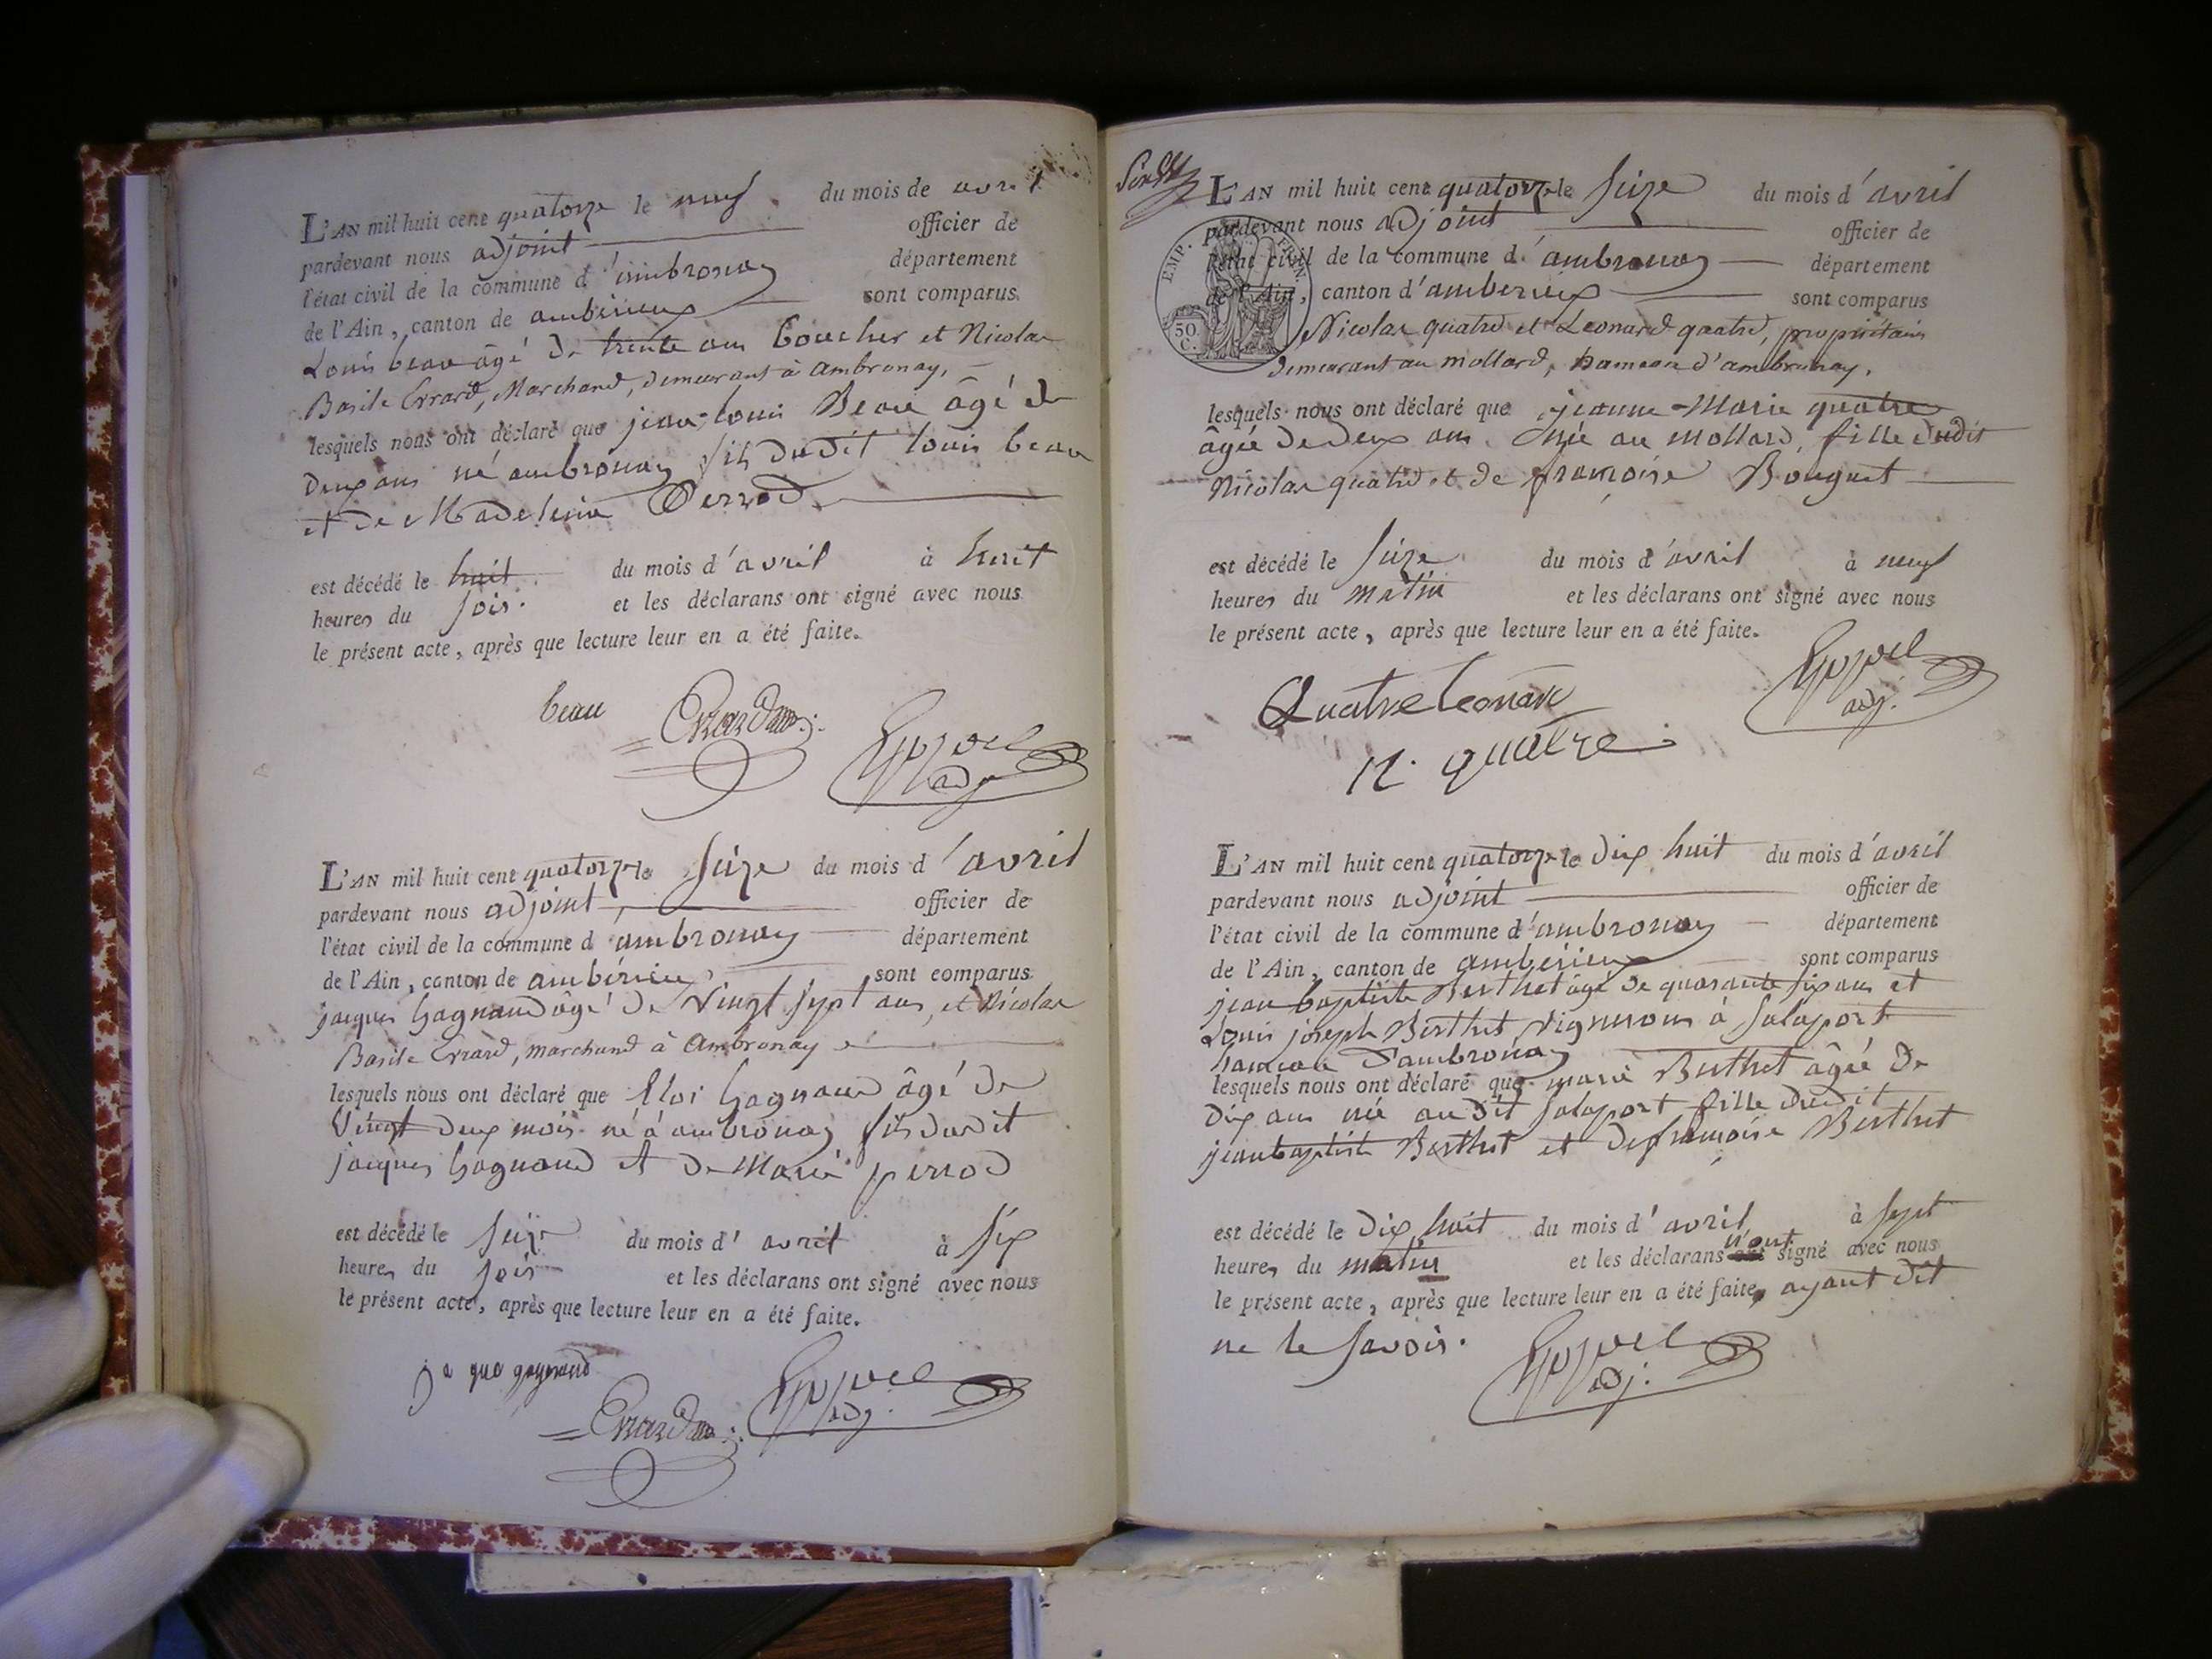 L'AN mil huit cent quatorze le neuf du mois de avril
pardevant nous adjoint officier de
l'état civil de la commune d'ambronay département
de l'Ain, canton de amberieux sont comparus
Louis beau âgé de trente ans boucher et Nicolas
Basile Errard, Marchand, demeurant à Ambronay,
lesquels nous ont déclaré que jean louis Beau âgé de
deux ans né ambronay fils dudit louis beau
et de Madeleine Perrod
est décédé le huit du mois d'avril à huit
heures du soir. et les déclarans ont signé avec nous
le présent acte, après que lecture leur en a été faite.
beau
Errard
adj
L'AN mil huit cent quatorze le seize du mois d'avril
pardevant nous adjoint, officier de
l'état civil de la commune d ambronay département
de l'Ain, canton de ambérieux sont comparus
jacques gagnaud âgé de vingt sept ans, et Nicolas
Basile Errard, marchand à Ambronay
lesquels nous ont déclaré que Eloi gagnaud âgé de
vingt deux mois né à ambronay fils dudit
jacques gagnaud et de Marie perrod
est décédé le seize du mois d' avril à six
heures du soir et les déclarans ont signé avec nous
le présent acte, après que lecture leur en a été faite.
ja que gagnaud
Errard
adj.
L'AN mil huit cent quatorze le seize du mois d'avril
pardevant nous adjoint officier de
l'état civil de la commune d'ambronay département
de l'Ain, canton d'amberieux sont comparus
EMP. FRAN.
50. C.
Nicolas quatre et Leonard quatre, propriétaires
demeurant au mollard, hameau d'ambronay.
lesquels nous ont déclaré que jeanne Marie quatre
âgée de deux ans née au mollard, fille dudit
Nicolas quatre et de françoise Bouguet
est décédé le seize du mois d'avril à neuf
heures du matin et les déclarans ont signé avec nous
le présent acte, après que lecture leur en a été faite.
adj.
Quatre Leonard
N. quatre
L'AN mil huit cent quatorze le dix huit du mois d'avril
pardevant nous adjoint officier de
l'état civil de la commune d'ambronay département
de l'Ain, canton de ambérieux sont comparus
jean baptiste Berthet âgé de quarante six ans et
Louis joseph Berthet vignerons à Salaport
hameau d'ambronay
lesquels nous ont déclaré que marie Berthet âgée de
dix ans née au dit Salaport fille dudit
jean baptiste Berthet et de françoise Berthet
est décédé le dix huit du mois d' avril à sept
heures du matin et les déclarans n'ont signé avec nous
le présent acte, après que lecture leur en a été faite, ayant dit
ne le savoir.
adj.